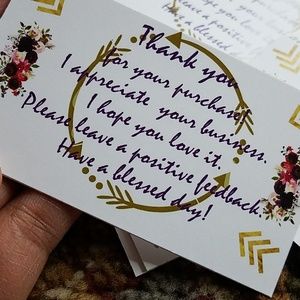 Thank you
for your purchase!
I appreciate your business.
I hope you love it.
Please leave a positive feedback.
Have a blessed day!